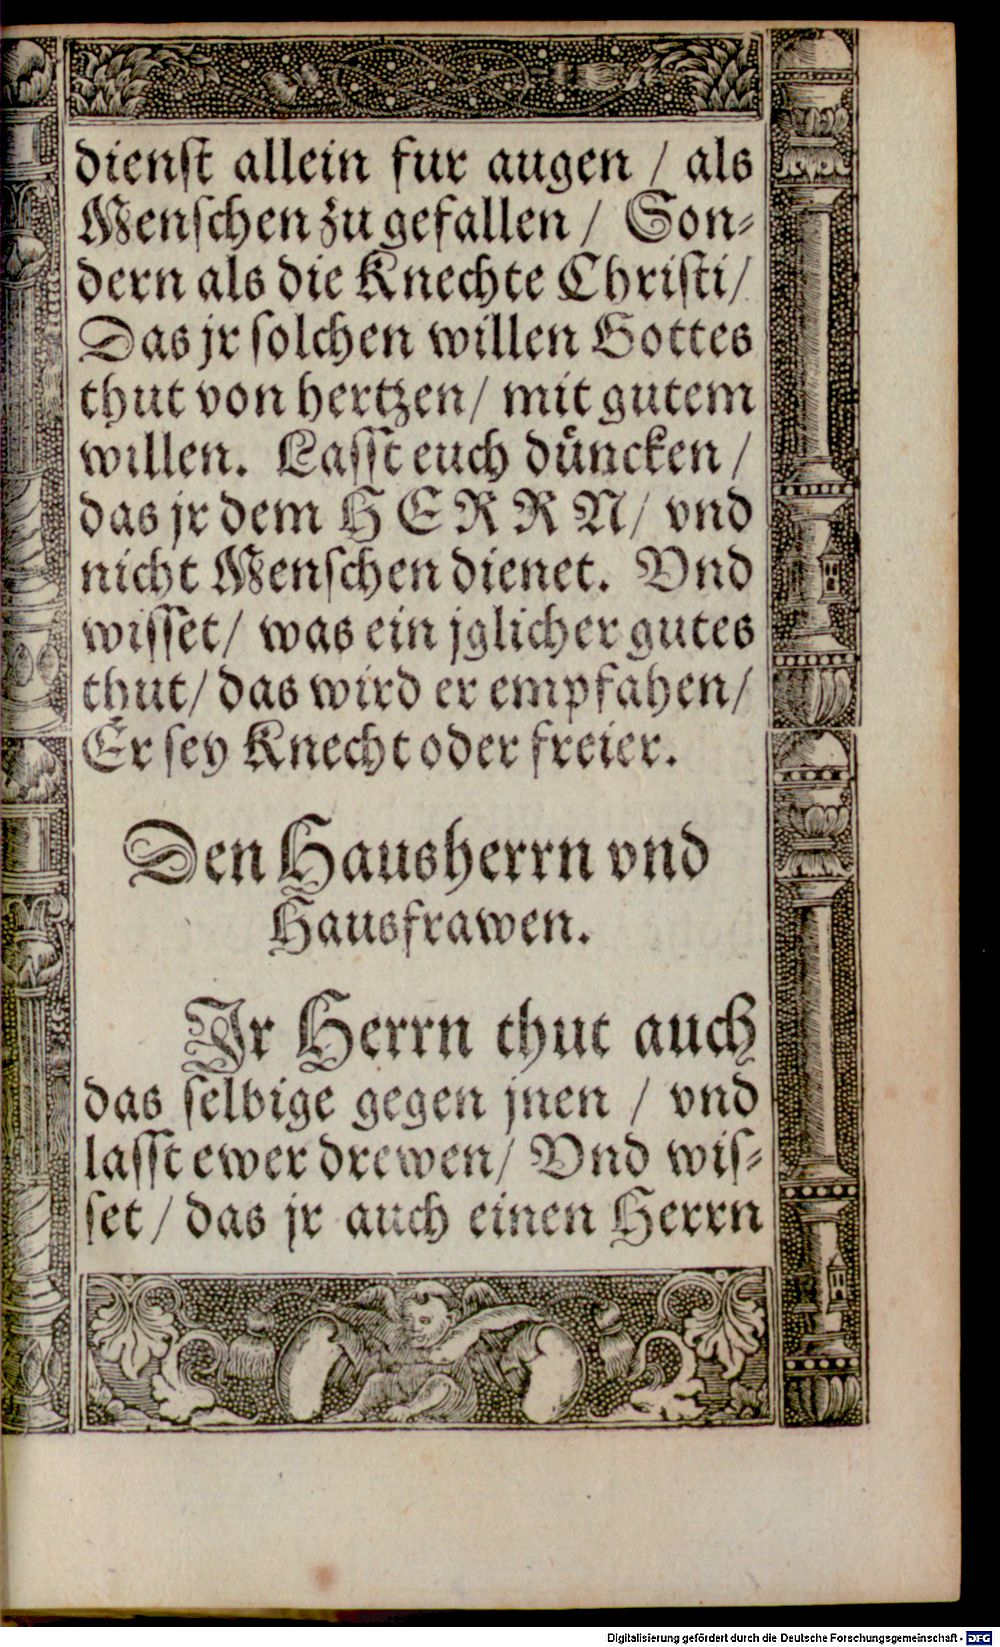 dienst allein fur augen / als
Menschen zu gefallen / Son⸗
dern als die Knechte Christi/
Das jr solchen willen Gottes
thut von hertzen/ mit gutem
willen. Lasst euch düncken /
das jr dem HERRN/ vnd
nicht Menschen dienet. Vnd
wisset/ was ein jglicher gutes
thut/ das wird er empfahen/
Er sey Knecht oder freier.
Den Hausherrn vnd
Hausfrawen.
Jr Herrn thut auch
das selbige gegen jnen / vnd
lasst ewer drewen/ Vnd wis⸗
set/ das jr auch einen Herrn
Digitalisierung gefördert durch die Deutsche Forschungsgemeinschaft - DFG